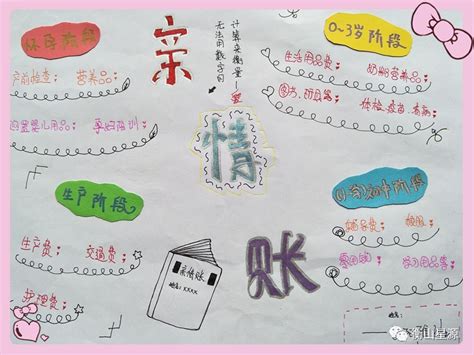 怀孕阶段
产前检查: 营养品:
婴儿用品: 孕妇培训:
亲
情
账
无法用数字可
计算来衡量!
0~3岁阶段
生活用品费: 奶粉营养品:
体检、疫苗、看病:
生产阶段
生产费: 交通费:
护理费:
亲情账
姓名:XXXX
初中阶段
辅导费:
零用钱: 学习用品等:
姓名:
衡山星源